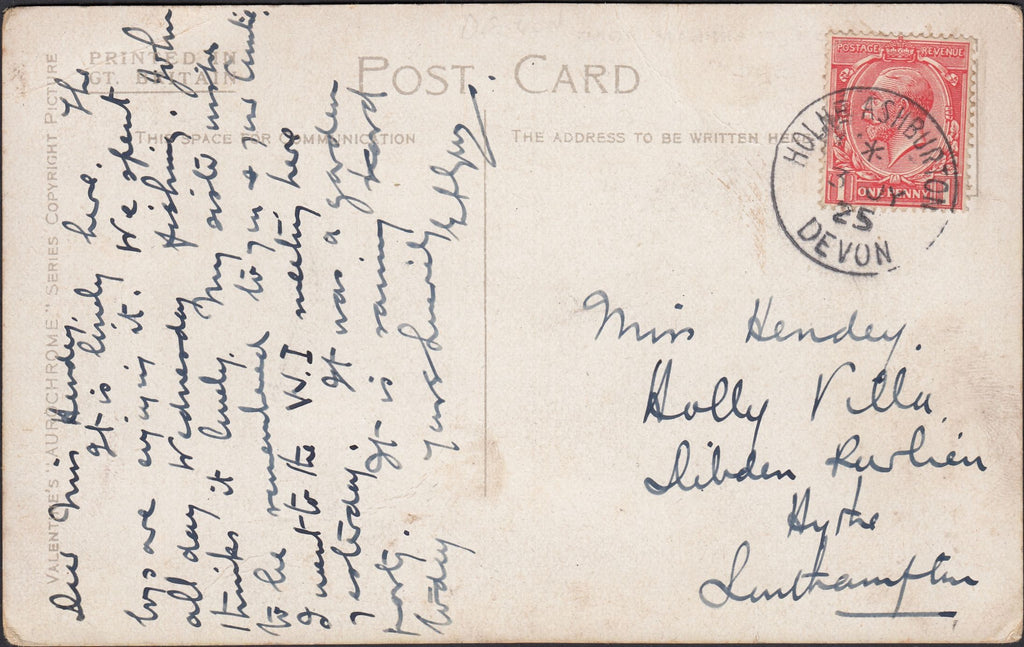 PRINTED IN
GT. BRITAIN
POST CARD
THIS SPACE FOR COMMUNICATION
THE ADDRESS TO BE WRITTEN HERE
VALENTINE'S "AUROCHROME" SERIES COPYRIGHT PICTURE
POSTAGE REVENUE
1 ONE PENNY
HOLNE ASHBURTON
*
3 JY
25
DEVON
Dear Miss Hendey.
It is lovely here. The
boys are enjoying it. We spent
all day Wednesday fishing. John
thinks it lovely. My sister wishes
to be remembered to you & 
I went to the W.I meeting here
yesterday. It was a garden
party. It is raining hard
today
Yours sincerely
Miss Hendey.
Holly Villa.
Dibden Purlieu
Hythe
Southampton